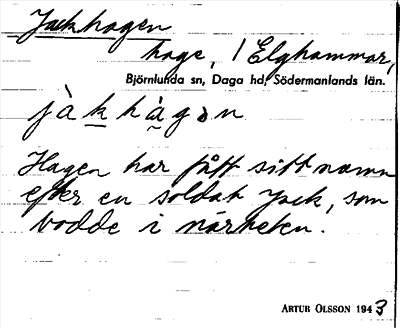 Jackhagen
hage, / Elghammar,
Björnlunda sn, Daga hd, Södermanlands län.
jàkhàgən
Hagen har fått sitt namn
efter en soldat Jack, som
bodde i närheten.
ARTUR OLSSON 1943